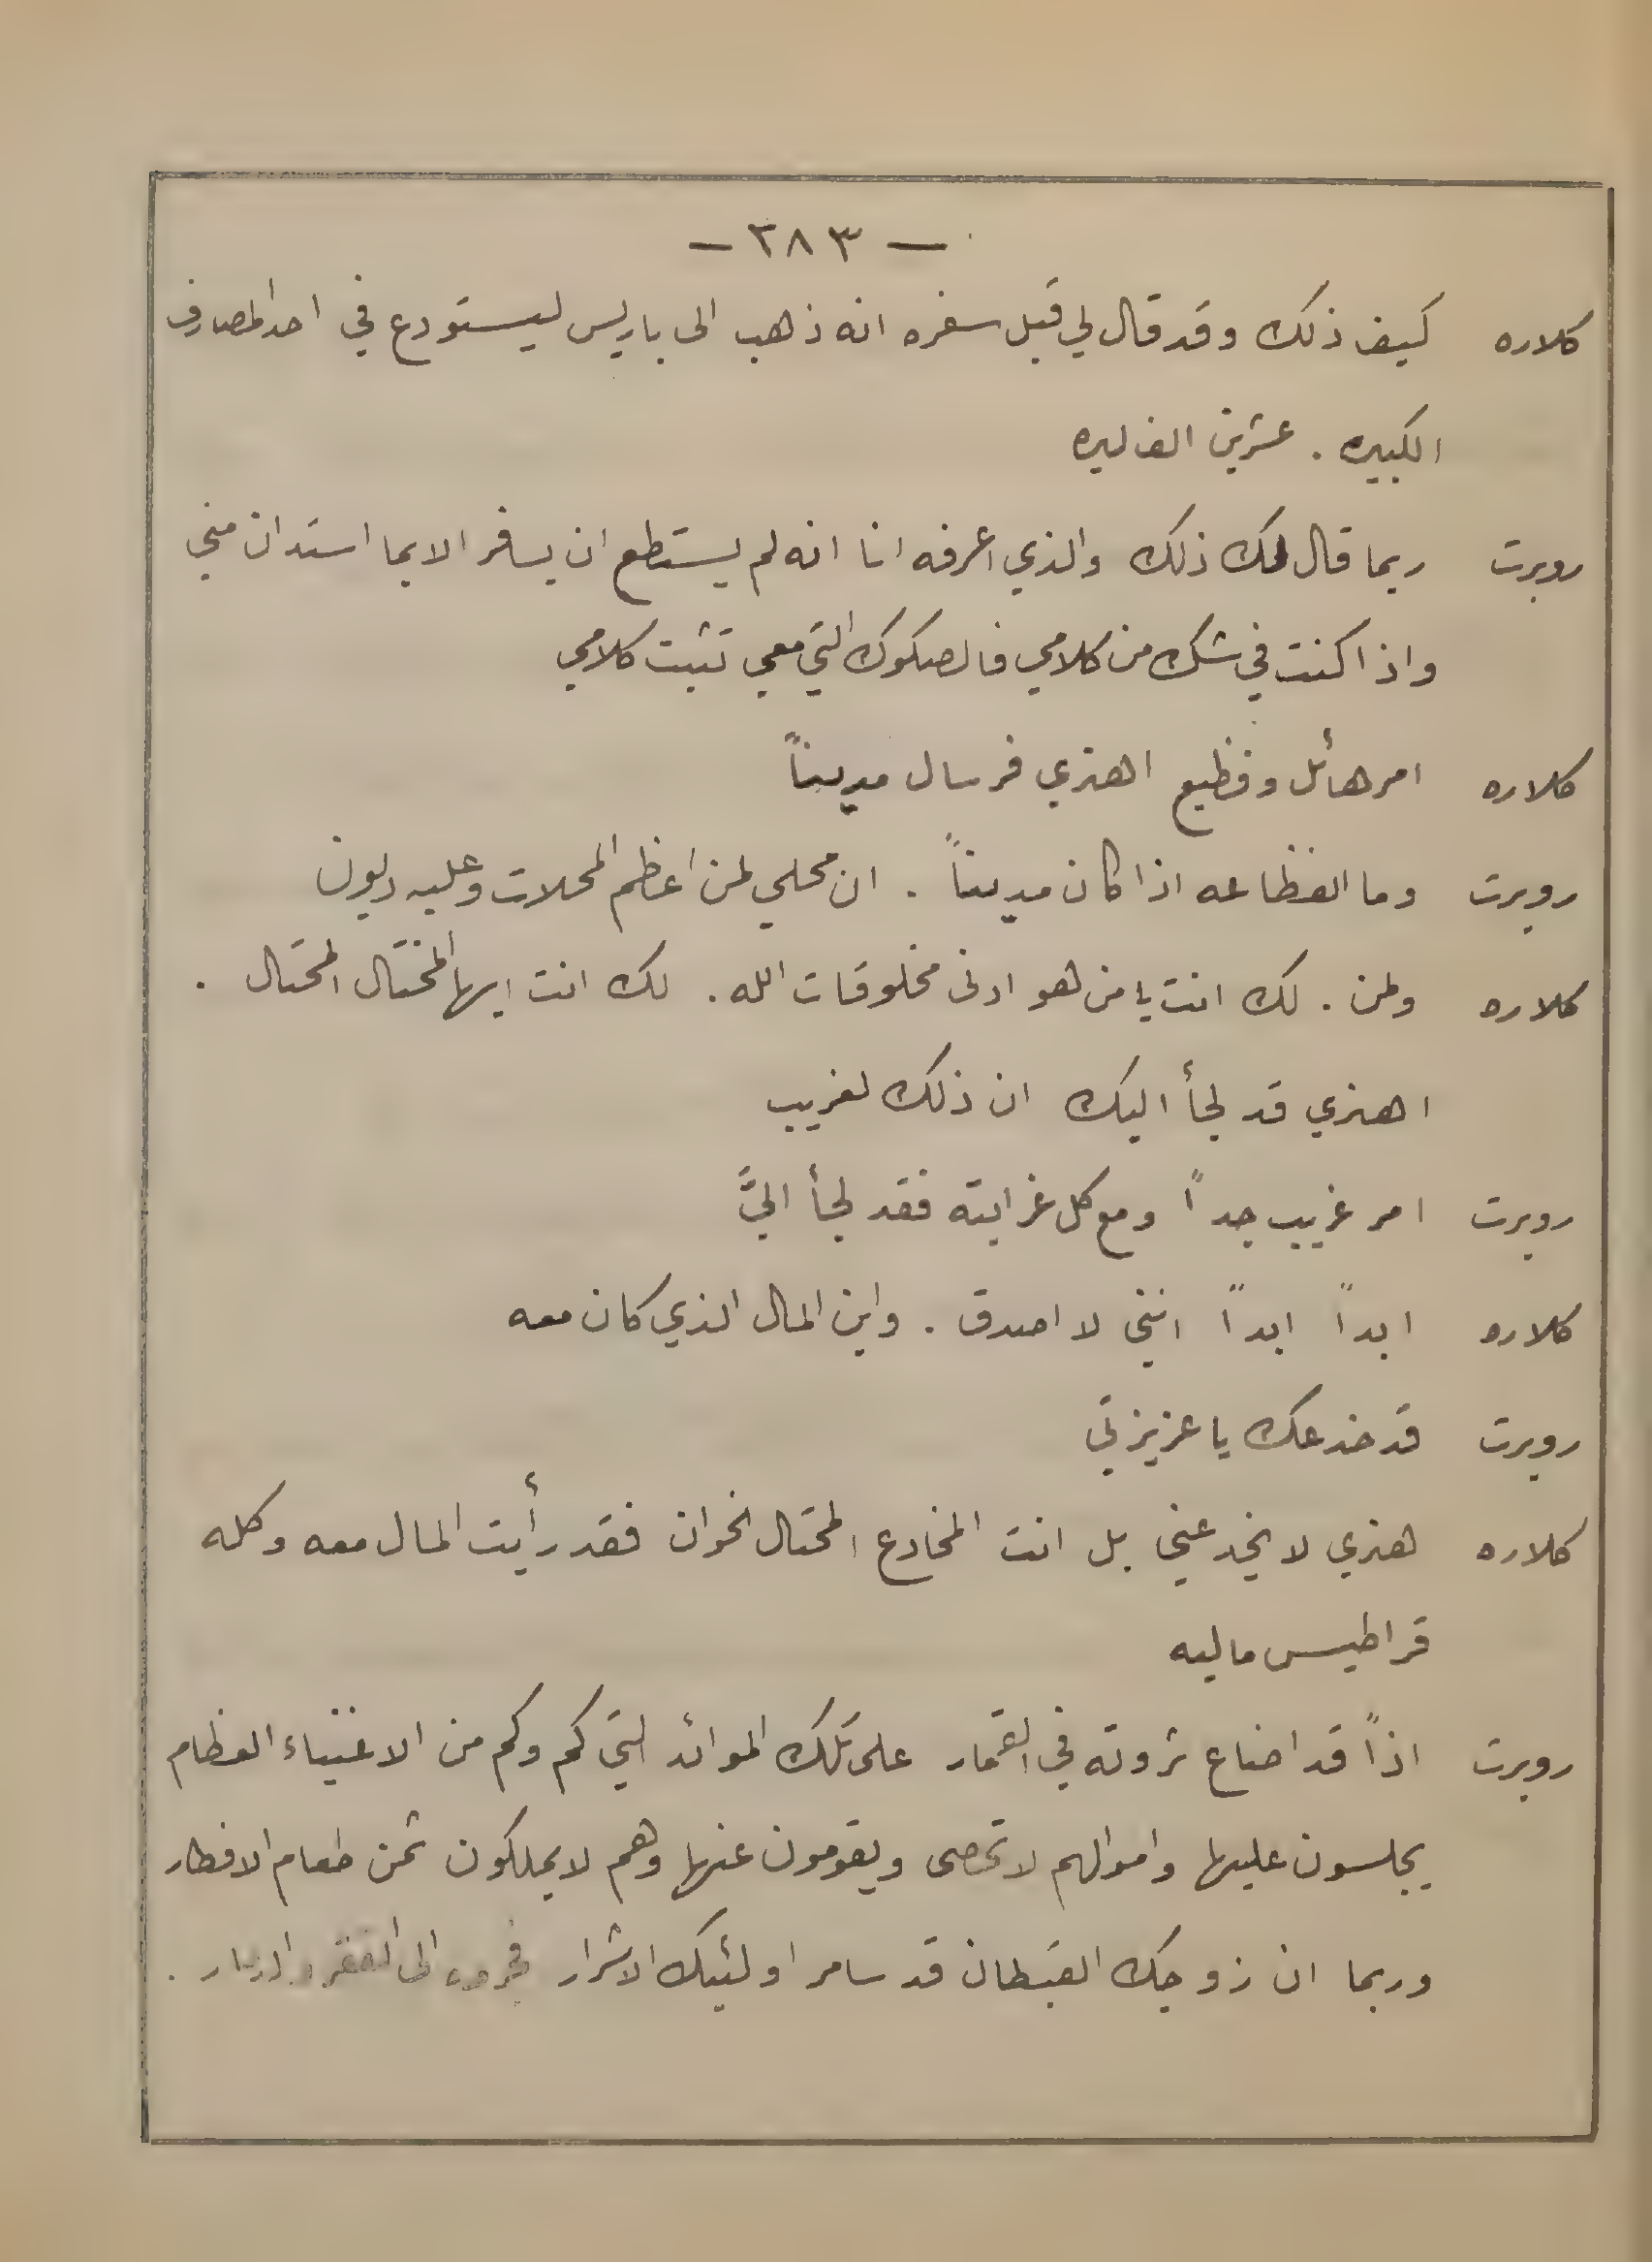 — ٢٨٣ —
كلاره كيف ذلك وقد قال لي قبل سفره انه ذهب الى باريس ليستودع في احد المصارف
الكبيره . عشرين الف ليره
روبرت ربما قال لك ذلك والذي اعرفه انا انه لم يستطع ان يسافر الا بما استدان مني
واذا كنت في شك من كلامي فالصكوك التي معي تثبت كلامي
كلاره امر هائل وفظيع اهنري فرسال مديناً
روبرت وما الفظاعه اذا كان مديناً . ان محلي لمن اعظم المحلات وعليه ديون
كلاره ولمن . لك انت يا من هو ادنى مخلوقات الله . لك انت ايها المختال المحتال .
اهنري قد لجأ اليك ان ذلك لغريب
روبرت امر غريب جداً ومع كل غرابته فقد لجأ اليَّ
كلاره ابداً ابداً انني لا اصدق . واين المال الذي كان معه
روبرت قد خدعك يا عزيزتي
كلاره هنري لا يخدعني بل انت المخادع المحتال الخوان فقد رأيت المال معه وكله
قراطيس ماليه
روبرت اذاً قد اضاع ثروته في القمار على تلك الموائد التي كم وكم من الاغنياء العظام
يجلسون عليها واموالهم لا تحصى ويقومون عنها وهم لا يملكون ثمن طعام الافطار
وربما ان زوجك القبطان قد سامر اولئيك الاشرار فجروه الى الفقر .